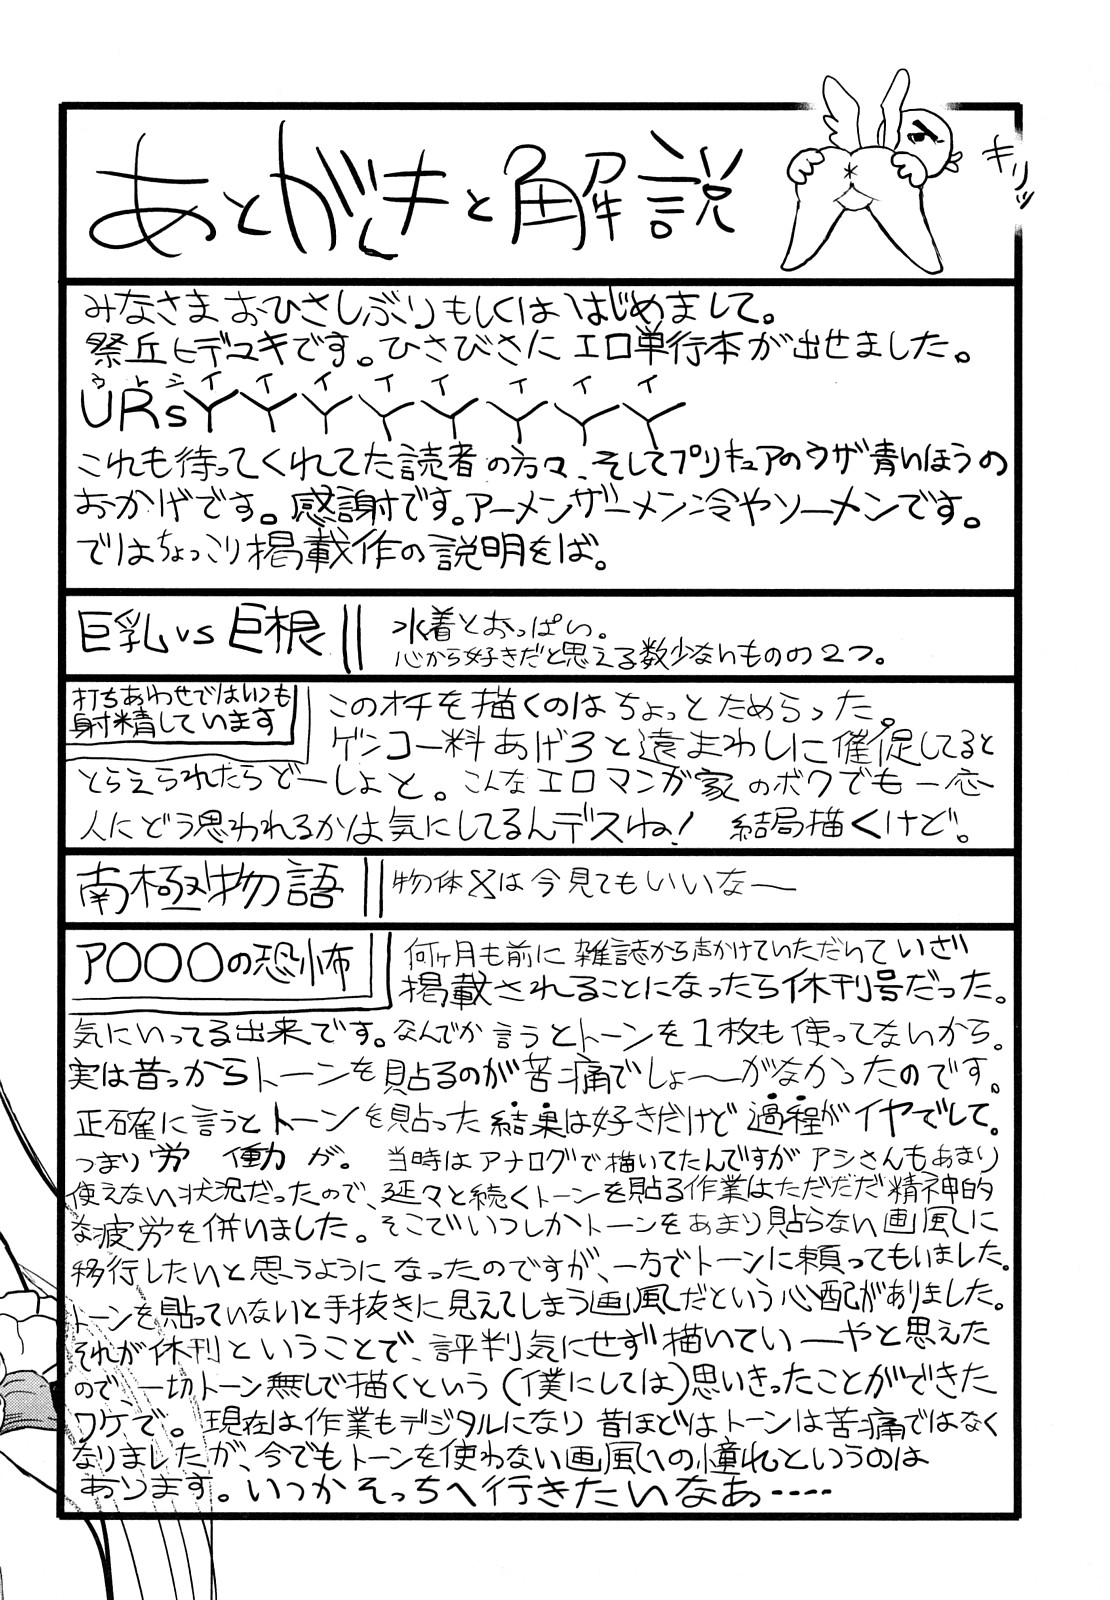 あとがきと解説
キリッ
みなさま おひさしぶり もしくは はじめまして。
祭丘ヒデユキです。ひさびさに エロ単行本が出せました。
ウ レ シ イ イ イ イ イ イ イ イ
URsYYYYYYYY
これも待ってくれてた読者の方々、そしてプリキュアのウザ青いほうの
おかげです。感謝です。アーメンザーメン冷やソーメンです。
ではちょっこり掲載作の説明をば。
巨乳vs巨根
水着とおっぱい。
心から好きだと思える数少ないものの2つ。
打ちあわせではいつも
射精しています
このオチを描くのはちょっとためらった。
ゲンコー料あげろと遠まわしに催促してると
とらえられたらどーしよと。こんなエロマンガ家のボクでも一応
人にどう思われるかは気にしてるんデスね! 結局描くけど。
南極物語
物体Xは今見てもいいなー
ア〇〇〇の恐怖
何ヶ月も前に雑誌から声かけていただいていざ
掲載されることになったら休刊号だった。
気にいってる出来です。なんでか言うとトーンを1枚も使ってないから。
実は昔っからトーンを貼るのが苦痛でしょ〜がなかったのです。
正確に言うとトーンを貼った結果は好きだけど過程がイヤでして。
つまり労働が。 当時はアナログで描いてたんですがアシさんもあまり
使えない状況だったので、延々と続くトーンを貼る作業はただだだ精神的
な疲労を併いました。そこでいつしかトーンをあまり貼らない画風に
移行したいと思うようになったのですが、一方でトーンに頼ってもいました。
トーンを貼っていないと手抜きに見えてしまう画風だという心配がありました。
それが休刊ということで、評判気にせず描いていーやと思えた
ので一切トーン無しで描くという(僕にしては)思いきったことができた
ワケで。現在は作業もデジタルになり昔ほどはトーンは苦痛ではなく
なりましたが、今でもトーンを使わない画風への憧れというのは
あります。いつかそっちへ行きたいなあ‥‥